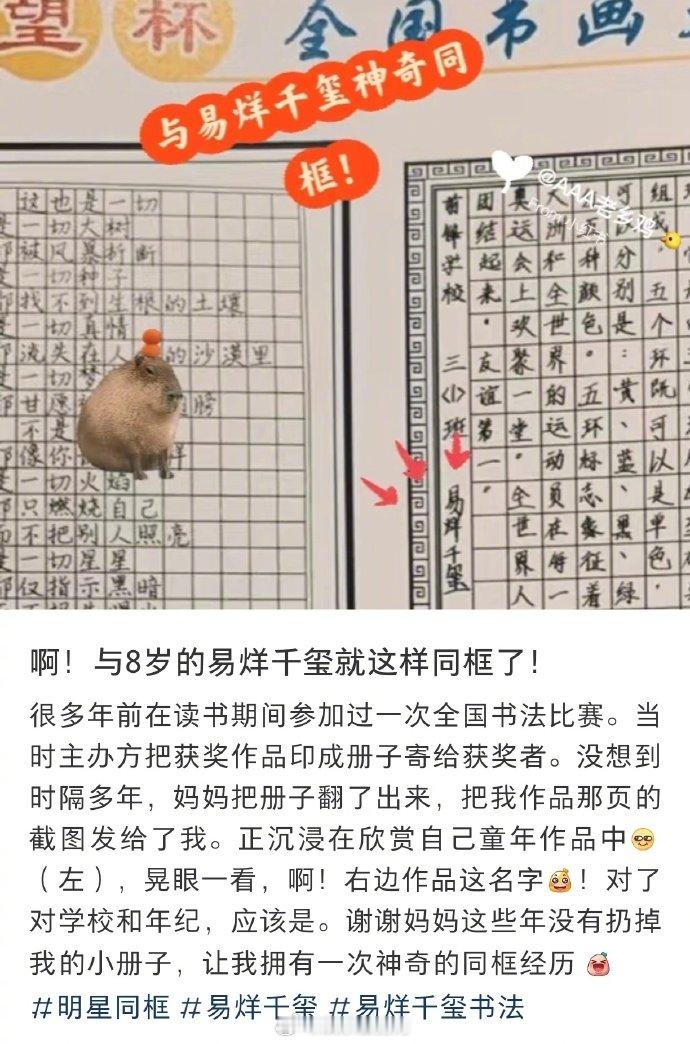 望杯 全国书画
与易烊千玺神奇同
框！
这也是一切
是一切大树
都被风暴折断
是一切种子
都找不到生根的土壤
是一切真情
都流失在人的沙漠里
是一切梦
都甘愿 膀
不是
都像你 样
是一切火焰
都只燃烧自己
而不把别人照亮
是一切星星
都仅指示黑暗
五个环既可以是单色
分别是：黄、蓝、黑、绿
种颜色 五环标志象征着
大洲和全世界的运动员在每一
奥运会上欢聚一堂。全世界人
团结起来。友谊第一。
前锋学校 三〈1〉班 易烊千玺
@AAA老乡鸡
From小红书
啊！与8岁的易烊千玺就这样同框了！
很多年前在读书期间参加过一次全国书法比赛。当
时主办方把获奖作品印成册子寄给获奖者。没想到
时隔多年，妈妈把册子翻了出来，把我作品那页的
截图发给了我。正沉浸在欣赏自己童年作品中
（左），晃眼一看，啊！右边作品这名字！对了
对学校和年纪，应该是。谢谢妈妈这些年没有扔掉
我的小册子，让我拥有一次神奇的同框经历
#明星同框 #易烊千玺 #易烊千玺书法